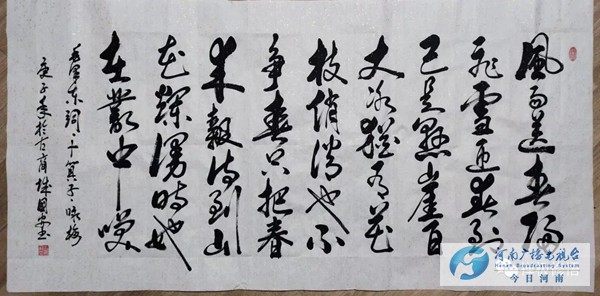 風雨送春歸
飛雪迎春到
已是懸崖百
丈冰猶有花
枝俏俏也不
争春只把春
来報待到山
花爛漫時她
在叢中笑
毛澤东詞卜算子咏梅
庚子春於古商城国安书
河南广播电视台
Henan Broadcasting System
今日河南